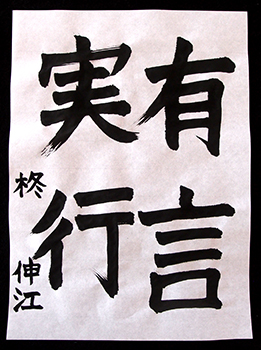 有言
実行
柊 伸江